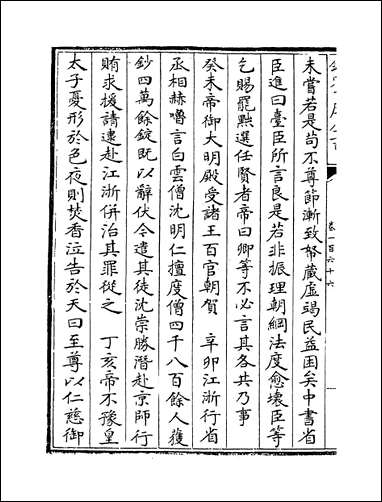 未嘗若是苟不尊節漸致帑藏虛竭民益困矣中書省
臣進曰臺臣所言良是若非振理朝綱法度愈壞臣等
乞賜罷黜選任賢者帝曰卿等不必言其各共乃事
癸未帝御大明殿受諸王百官朝賀　辛卯江浙行省
丞相赫嚕言白雲僧沈明仁擅度僧四千八百餘人獲
鈔四萬餘錠既以辭伏今遣其徒沈崇勝潛赴京師行
賄求援請逮赴江浙併治其罪從之　丁亥帝不豫皇
太子憂形於色夜則焚香泣告於天曰至尊以仁慈御